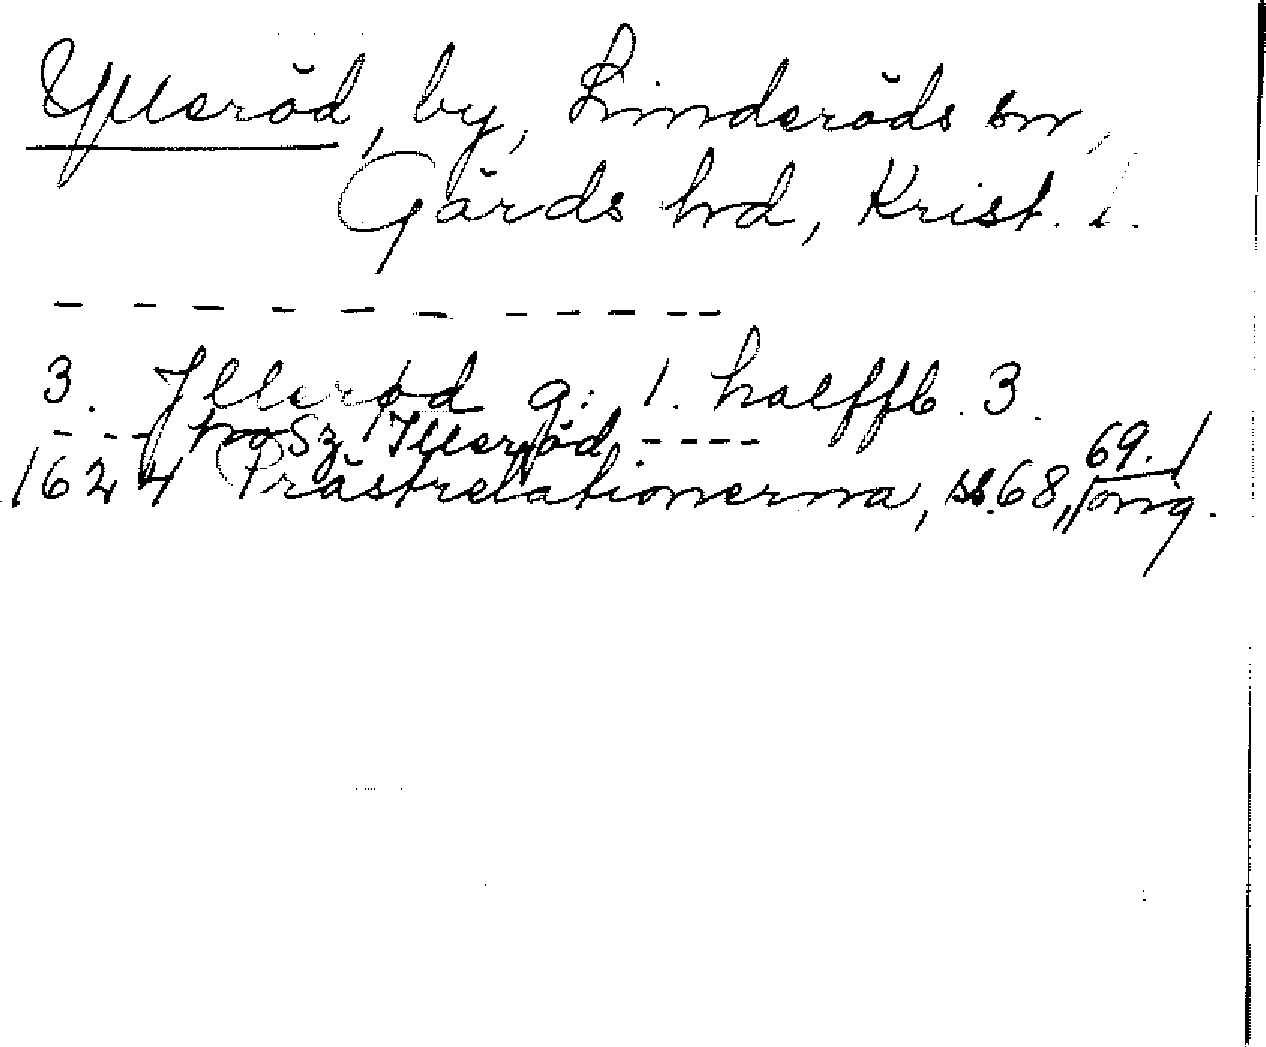 Ylleröd, by, Linderöds sn,
Gärds hd, Krist. l.
- - - - - - - - - - -
3. Yllerød g: 1. halffb. 3.
- - - hoSz Illerød, - - - -
1624 Prästrelationerna, ss. 68, 69. /
omg.